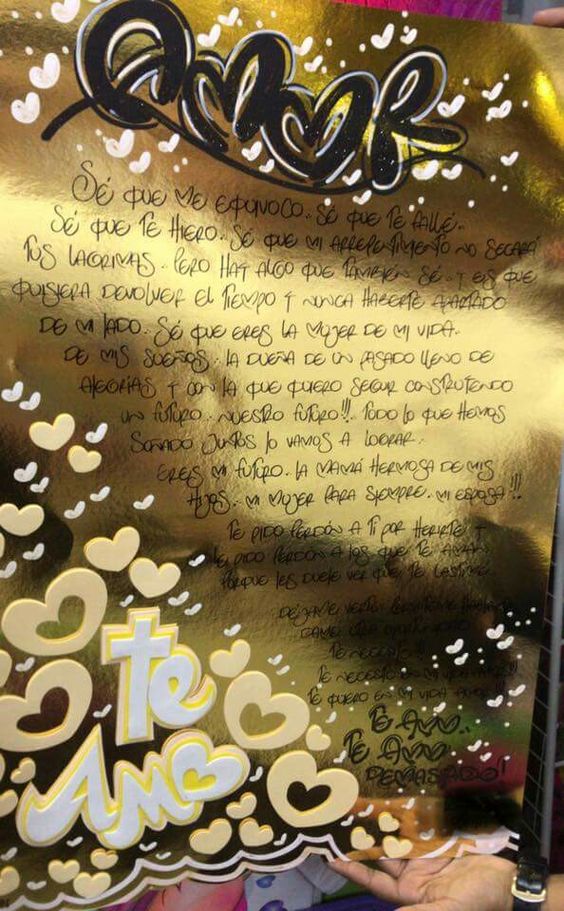 Amor
Sé que me equivoco.. Sé que te fallé..
Sé que te hiero.. Sé que mi arrepentimiento no secará
tus lagrimas. Pero hay algo que también sé. Y es que
quisiera devolver el tiempo y nunca haberte apartado
de mi lado. Sé que eres la mujer de mi vida.
De mis sueños. La dueña de un pasado lleno de
alegrías y con la que quiero seguir construyendo
un futuro. Nuestro futuro!!! Todo lo que hemos
soñado juntos lo vamos a lograr.
Eres mi futuro. La mamá hermosa de mis
hijos. Mi mujer para siempre. Mi esposa!!!
Te pido perdón a ti por herirte y
te pido perdón a los que te aman
porque les duele ver que te lastimé.
Déjame verte.
Dame
Te necesito!!
Te necesito en mi vida
Te quiero en mi vida
Te amo..
Te amo
demasiado!
Te
Amo